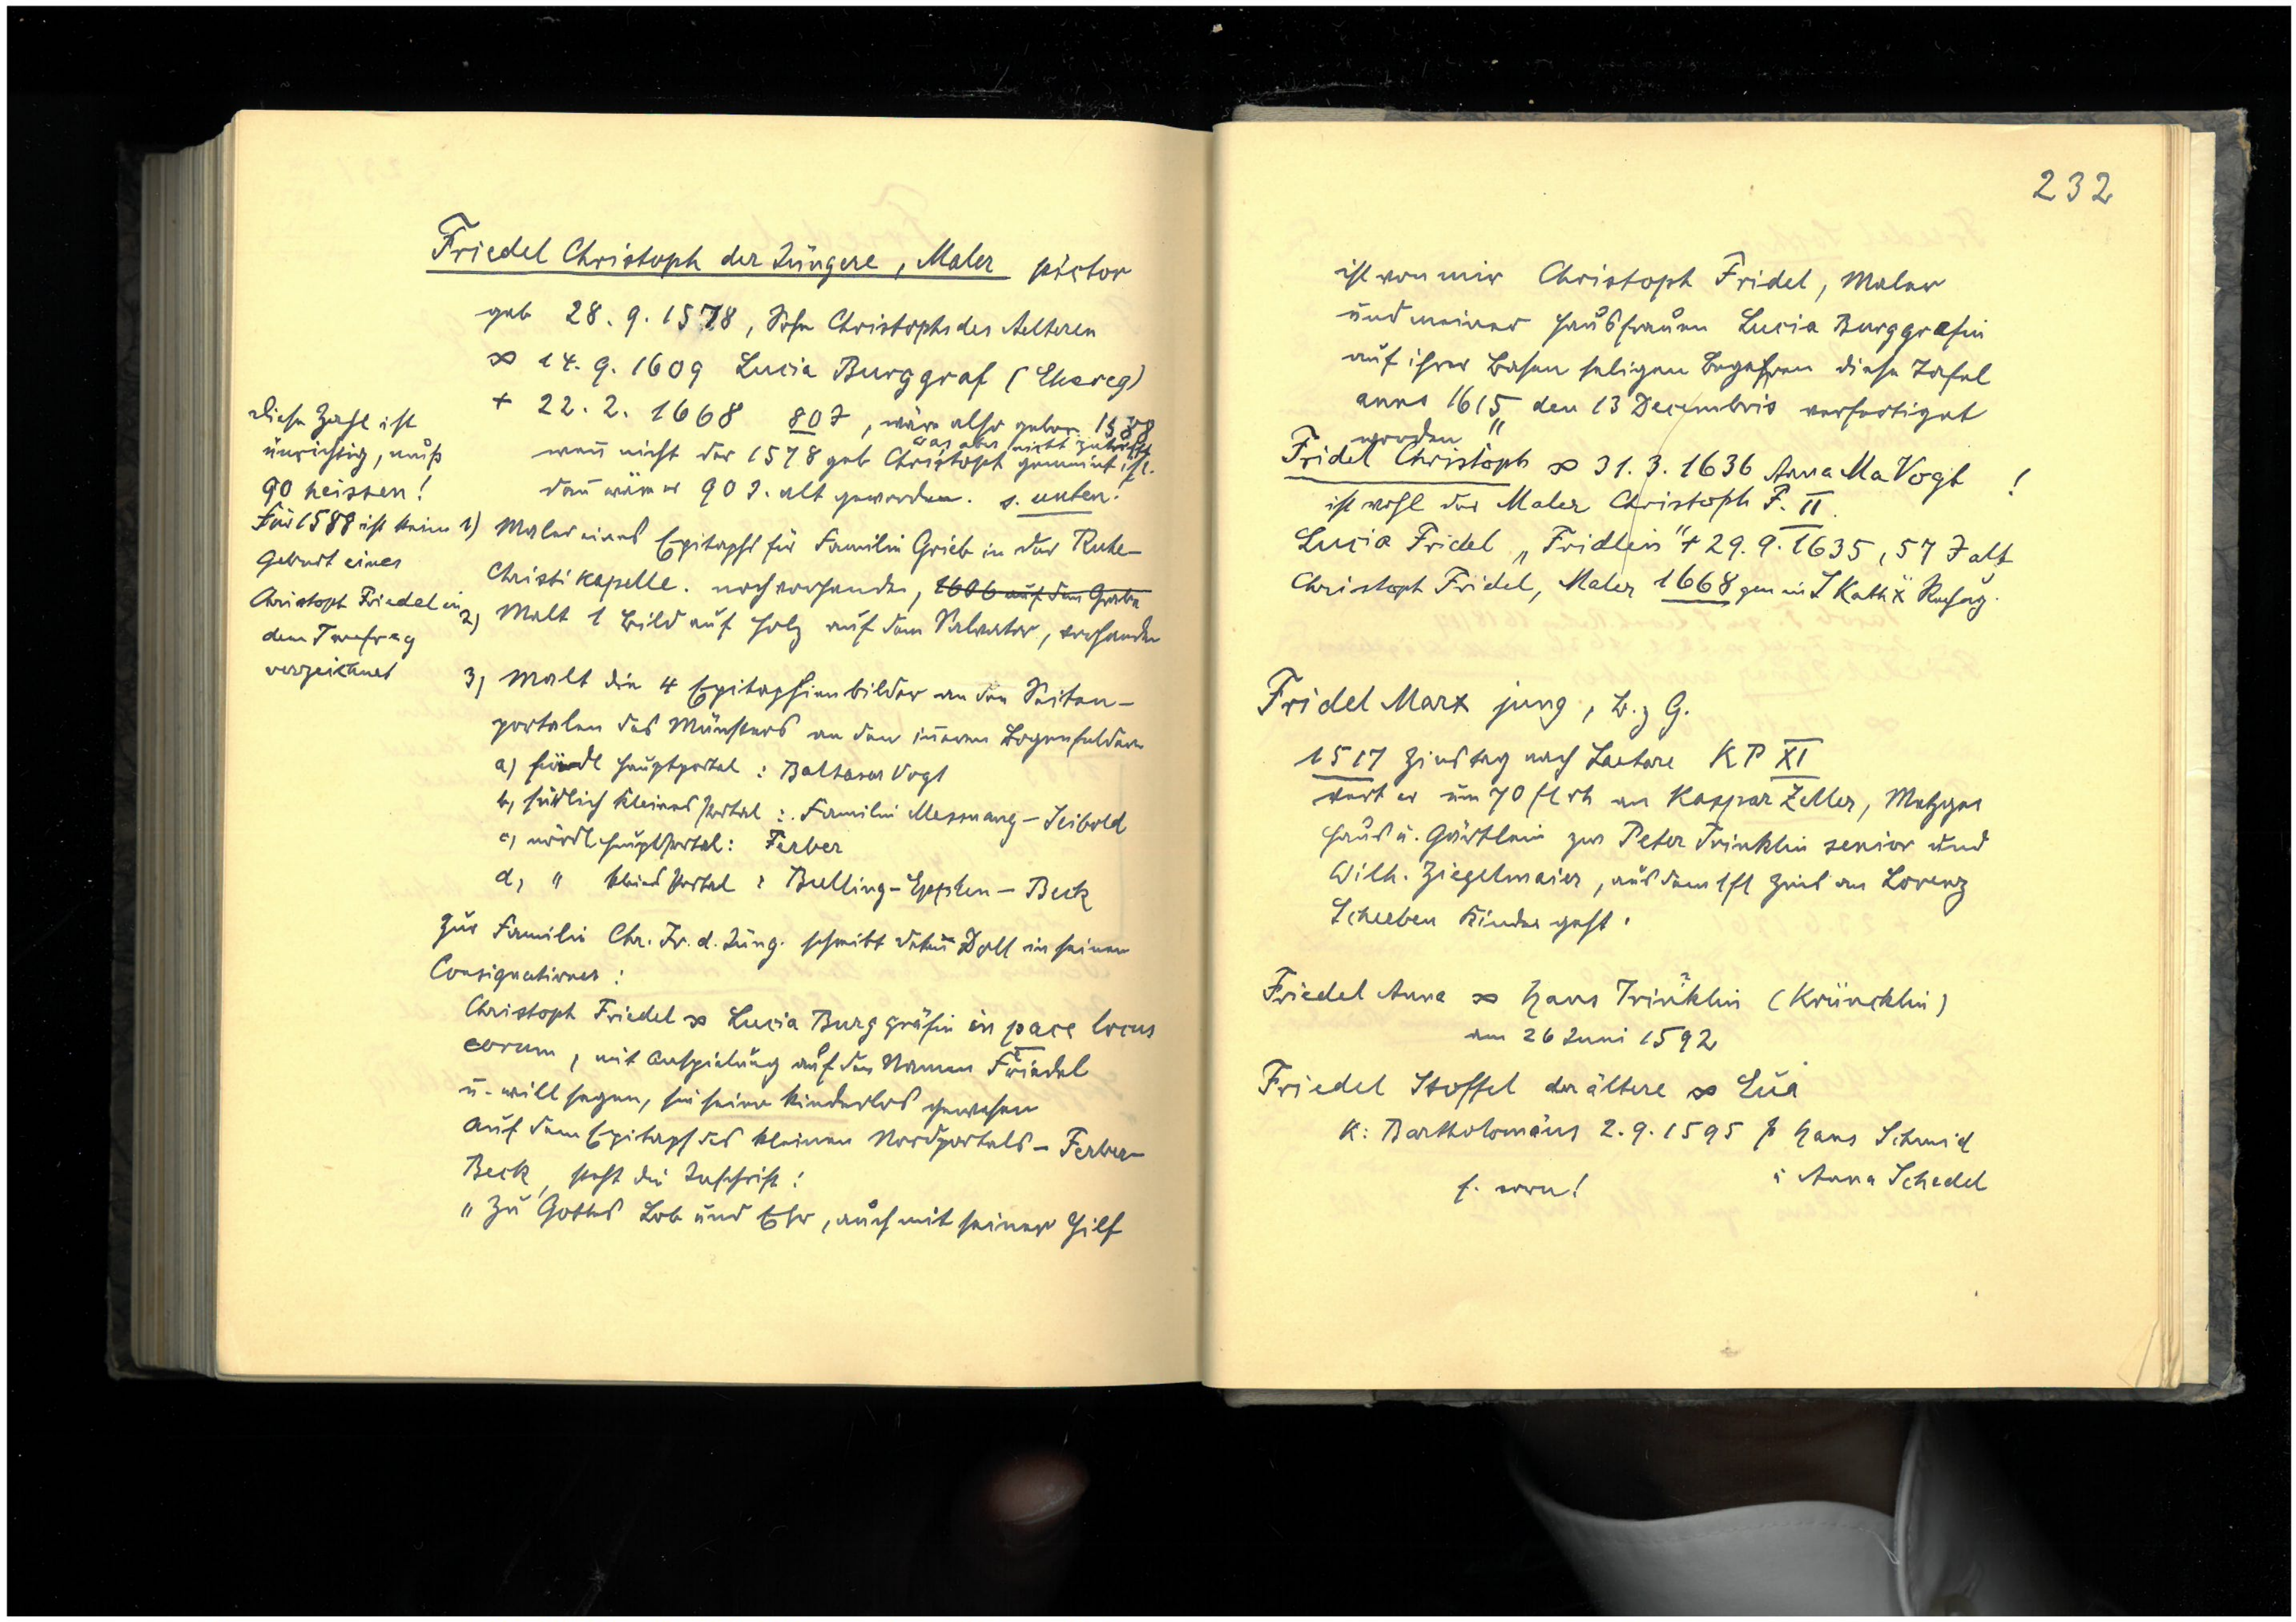 Friedel Christoph der Jüngere, Maler pictor
geb 28.9.1578, Sohn Christophs des Aelteren
∞ 14.9.1609 Lucia Burggraf (Ehereg)
+ 22.2.1668 80 J, wäre also gebor. 1588
was aber nicht zutrifft
wenn nicht der 1578 geb Christoph gemeint ist.
dann wäre er 90 J. alt geworden. s. unten!
Diese Zahl ist
unrichtig, muß
90 heissen!
Für 1588 ist keine
Geburt eines
Christoph Friedel in
dem Taufreg
verzeichnet
1) Maler eines Epitaphs für Familie Grieb in der Ruhe-
Christi Kapelle. noch vorhanden, 1606 auf dem Grabe
2) Malt 1 Bild auf Holz auf dem Salvator, vorhanden
3) Malt die 4 Epitaphienbilder an den Seiten-
portalen des Münsters an den inneren Bogenfeldern
a) südl Hauptportal: Baltasar Vogt
b) südlich kleines Portal: Familie Messnang-Seibold
c) nördl Hauptportal: Ferber
d) " kleines Portal: Bulling-Epplen-Beck
Zur Familie Chr. Fr. d. Jüng. schreibt Dekan Doll in seinen
Consignationes:
Christoph Friedel ∞ Lucia Burggräfin in pace locus
eorum, mit Anspielung auf den Namen Friedel
u. will sagen, sie seien kinderlos gewesen
Auf dem Epitaph des kleinen Nordportals - Ferber-
Beck, steht die Inschrift:
"Zu Gottes Lob und Ehr, auch mit seiner Hilf
232
ist von mir Christoph Fridel, Maler
und meiner Hausfrauen Lucia Burggrefin
auf ihrer Basen seligen Begehren diese Tafel
anno 1615 den 13 Decembris verfertiget
worden"
Fridel Christoph ∞ 31.3.1636 Anna Ma Vogt !
ist wohl der Maler Christoph F. II.
Lucia Fridel "Fridlein" + 29.9.1635, 57 J alt
Christoph Fridel, Maler 1668 gen in S Kath
Fridel Marx jung, B. z G.
1517 Zinstag nach Laetare KP XI
verk er um 70 fl rh an Kaspar Zeller, Metzger
Haus u. Gärtlein zw Peter Trinklin senior und
Wilh. Ziegelmaier, aus dem 1 fl Zins an Lorenz
Scherben Kinder geht.
Friedel Anna ∞ Hans Trinklin (Krüncklin)
am 26 Juni 1592
Friedel Stoffel der ältere ∞ Eua
K: Bartholomäus 2.9.1595 p Hans Schmid
u Anna Schedel
s. vorn!